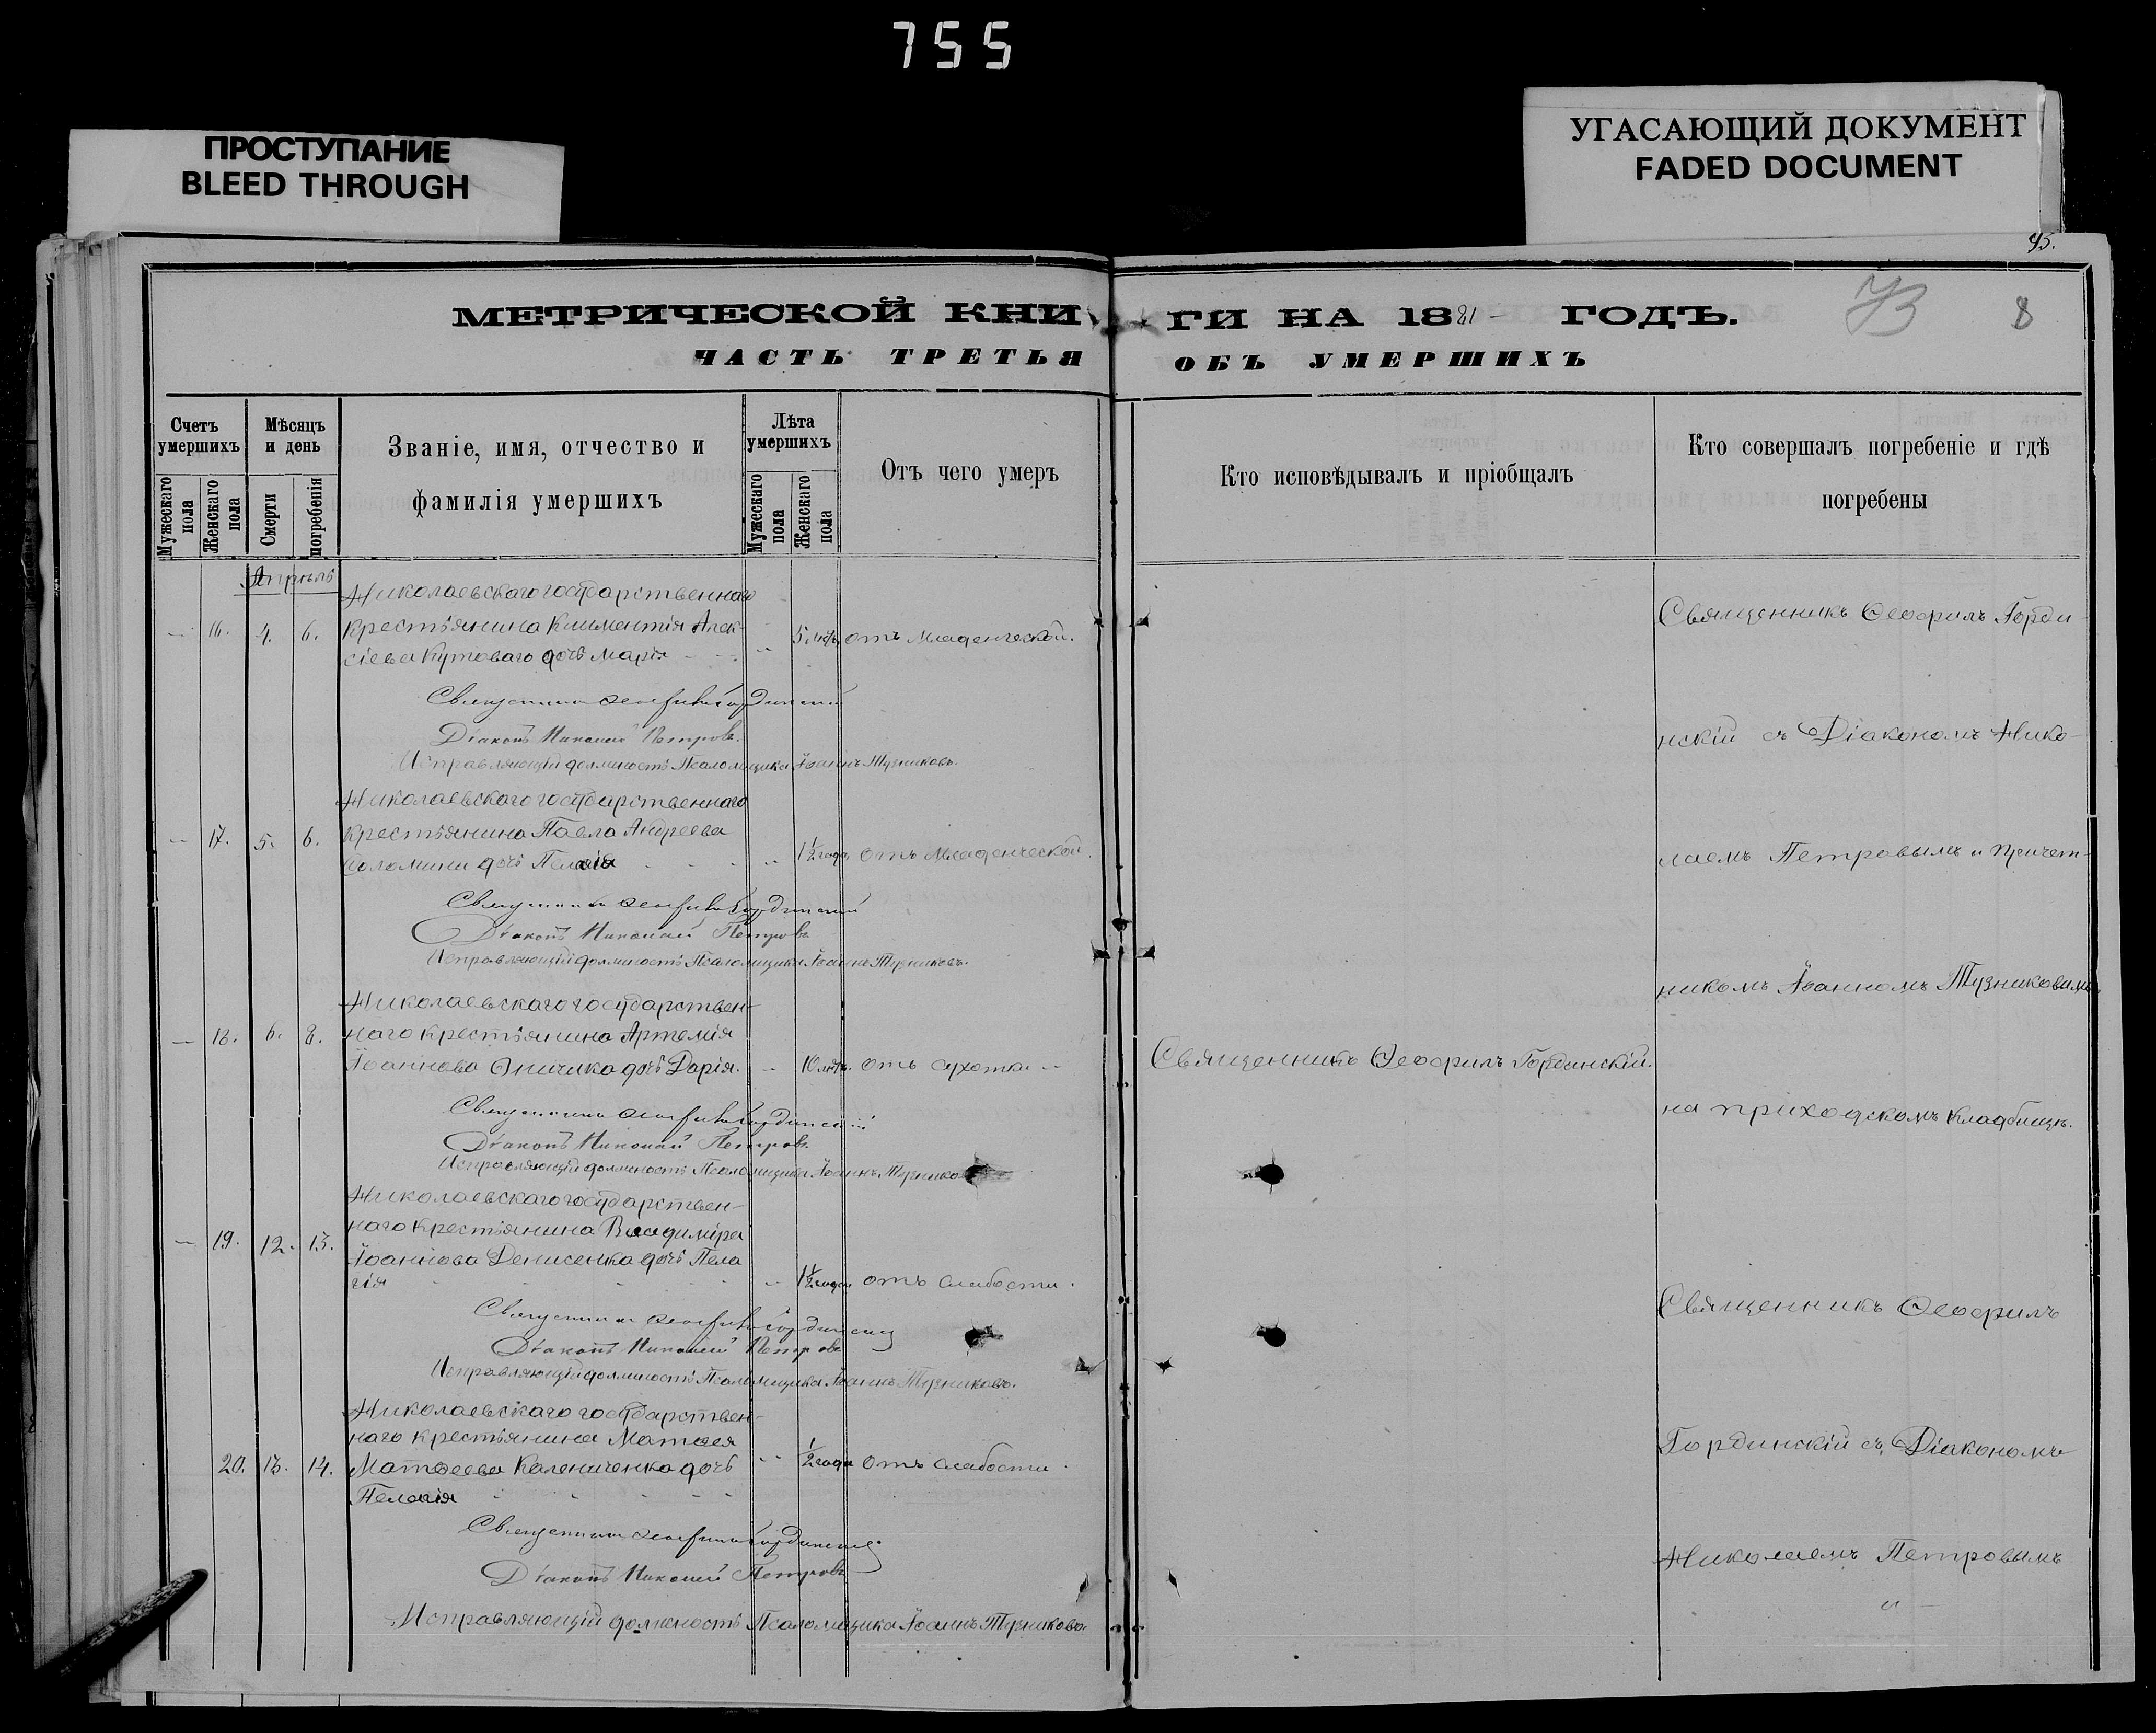 755
ПРОСТУПАНИЕ
BLEED THROUGH
УГАСАЮЩИЙ ДОКУМЕНТ
FADED DOCUMENT
95.
73
8
МЕТРИЧЕСКОЙ КНИГИ НА 1881 ГОДЪ.
ЧАСТЬ ТРЕТЬЯ ОБЪ УМЕРШИХЪ
Счетъ умершихъ
Мужескаго пола
Женскаго пола
Мѣсяцъ и день
Смерти
погребенія
Званіе, имя, отчество и
фамилія умершихъ
Лѣта умершихъ
Мужескаго пола
Женскаго пола
Отъ чего умеръ
Кто исповѣдывалъ и пріобщалъ
Кто совершалъ погребеніе и гдѣ
погребены
Апрель
Николаевскаго государственнаго
16. 4. 6. крестьянина Климентія Алек-
сіева Кутоваго дочь Марія 5 лѣтъ отъ младенческой.
Священникъ Ѳеофилъ Гординскій
Діаконъ Николай Петровъ.
Исправляющій должность Псаломщика Іоаннъ Тузниковъ.
Николаевскаго государственнаго
17. 5. 6. крестьянина Павла Андреева
Соломини дочь Пелагія 1 1/2 года отъ младенческой.
Священникъ Ѳеофилъ Гординскій
Діаконъ Николай Петровъ
Исправляющій должность Псаломщика Іоаннъ Тузниковъ.
Николаевскаго государствен-
18. 6. 8. наго крестьянина Артемія
Іоаннова Оничика дочь Дарія. 10 лѣтъ. отъ сухотки
Священникъ Ѳеофилъ Гординскій.
Священникъ Ѳеофилъ Гординскій
Діаконъ Николай Петровъ.
Исправляющій должность Псаломщика Іоаннъ Тузнико
Николаевскаго государствен-
19. 12. 13. наго крестьянина Владиміра
Іоаннова Денисенка дочь Пела
гія 1 1/2 года отъ слабости.
Священникъ Ѳеофилъ Гординскій
Діаконъ Николай Петровъ
Исправляющій должность Псаломщика Іоаннъ Тузниковъ.
Николаевскаго государствен-
наго крестьянина Матѳея
20. 13. 14. Матѳеева Калениченка дочь 1/2 года отъ слабости.
Пелагія
Священникъ Ѳеофилъ Гординскій
Діаконъ Николай Петровъ
Исправляющій должность Псаломщика Іоаннъ Тузниковъ.
Священникъ Ѳеофилъ Горди
нскій съ Діакономъ Нико-
лаемъ Петровымъ и Причет-
никомъ Іоанномъ Тузниковымъ
на приходскомъ кладбищѣ.
Священникъ Ѳеофилъ
Гординскій съ Діакономъ
Николаемъ Петровымъ
и